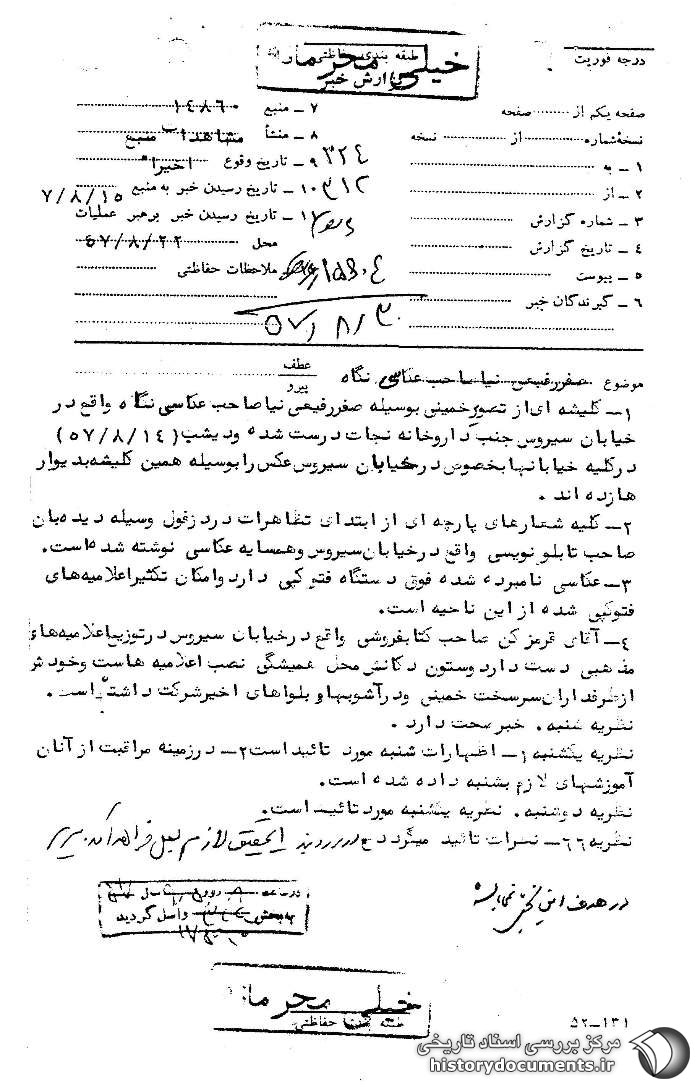 طبقه بندی حفاظتی
خیلی محرمانه
گزارش خبر
درجه فوریت
صفحه یکم از صفحه
۷ – منبع ۱۴۸۶۰
نسخه شماره از نسخه
۸ – منشأ مشاهدات منبع
۱ – به
۹ – تاریخ وقوع اخیرا"
۳۲۴
۲ – از
۱۰ – تاریخ رسیدن خبر به منبع ۷/۸/۱۵
۳۱۲
۳ – شماره گزارش
۱۱ – تاریخ رسیدن خبر برهبر عملیات
۴ – تاریخ گزارش
محل ۵۷/۸/۲۲
۵ – پیوست
ملاحظات حفاظتی
۶ – گیرندگان خبر
۵۷/۸/۳۰
موضوع صفررفیعی نیا صاحب عکاسی نگاه
عطف
پیرو
۱– کلیشه ای از تصویر خمینی بوسیله صفررفیعی نیا صاحب عکاسی نگاه واقع در
خیابان سیروس جنب داروخانه نجات درست شده ودیشب (۵۷/۸/۱۴)
در کلیه خیابانها بخصوص در خیابان سیروس عکس را بوسیله همین کلیشه بدیوار
ها زده اند .
۲– کلیه شعارهای پارچه ای از ابتدای تظاهرات در دزفول وسیله دیده بان
صاحب تابلو نویسی واقع در خیابان سیروس وهمسایه عکاسی نوشته شده است.
۳– عکاسی نامبرده شده فوق دستگاه فتوکپی دارد وامکان تکثیر اعلامیه های
فتوکپی شده از این ناحیه است.
۴– آقای قرمز کن صاحب کتابفروشی واقع در خیابان سیروس در توزیع اعلامیه های
مذهبی دست دارد وستون دکانش محل همیشگی نصب اعلامیه هاست وخودش
از طرفداران سرسخت خمینی ودر آشوبها و بلواهای اخیر شرکت داشته است.
نظریه شنبه. خبر صحت دارد .
نظریه یکشنبه ۱– اظهارات شنبه مورد تائید است ۲– در زمینه مراقبت از آنان
آموزشهای لازم بشنبه داده شده است.
نظریه دوشنبه. نظریه یکشنبه مورد تائید است.
نظریه ۶۶– نظرات تائید میگردد
در هدف
در ساعت روز سال
به بخش واصل گردید
خیلی محرمانه
طبقه بندی حفاظتی
۵۲–۱۳۱
مرکز بررسی اسناد تاریخی
historydocuments.ir